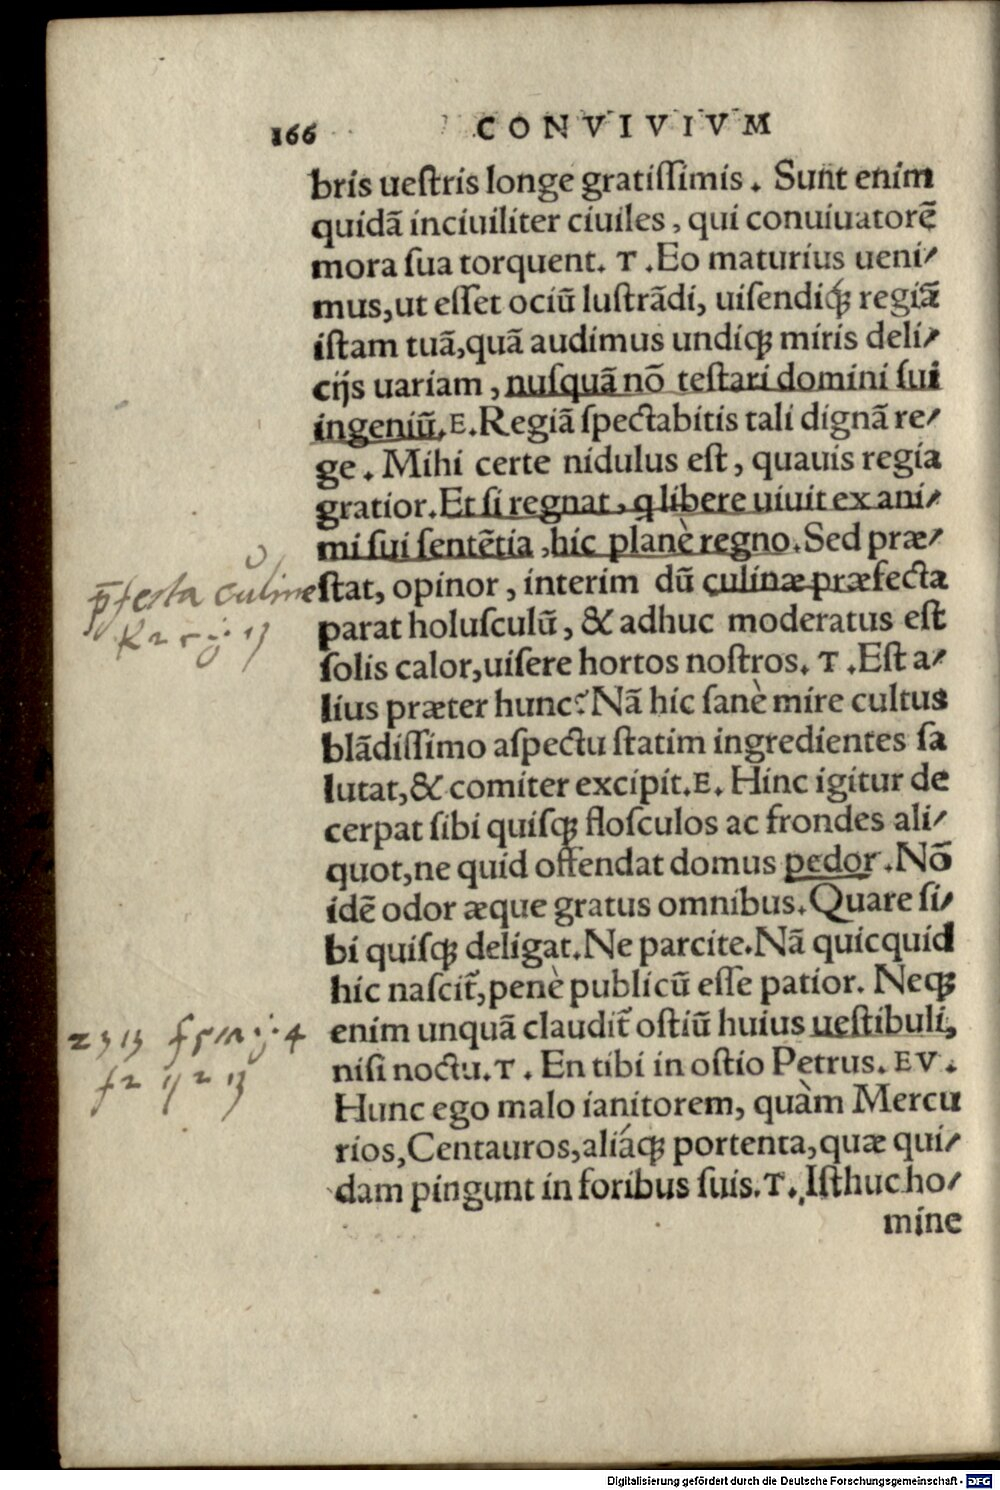 166 CONVIVIVM
bris uestris longe gratissimis. Sunt enim
quidā inciuiliter ciuiles, qui conuiuatorē
mora sua torquent. T. Eo maturius ueni⸗
mus, ut esset ociū lustrādi, uisendiq́ꝫ regiā
istam tuā, quā audimus undiqꝫ miris deli⸗
cijs uariam, nusquā nō testari domini sui
ingeniū. E. Regiā spectabitis tali dignā re⸗
ge. Mihi certe nidulus est, quauis regia
gratior. Et si regnat, q libere uiuit ex ani⸗
mi sui sentētia, hic planè regno. Sed præ⸗
stat, opinor, interim dū culinæ præfecta
parat holusculū, & adhuc moderatus est
solis calor, uisere hortos nostros. T. Est a⸗
lius præter hunc? Nā hic sanè mire cultus
blādissimo aspectu statim ingredientes sa
lutat, & comiter excipit. E. Hinc igitur de
cerpat sibi quisqꝫ flosculos ac frondes ali⸗
quot, ne quid offendat domus pedor. Nō
idē odor æque gratus omnibus. Quare si⸗
bi quisqꝫ deligat. Ne parcite. Nā quicquid
hic nascit̃, penè publicū esse patior. Neqꝫ
enim unquā claudit̃ ostiū huius uestibuli,
nisi noctu. T. En tibi in ostio Petrus. EV.
Hunc ego malo ianitorem, quàm Mercu
rios, Centauros, aliáqꝫ portenta, quæ qui⸗
dam pingunt in foribus suis. T. Isthuc ho⸗
mine
p̄fecta culine
Digitalisierung gefördert durch die Deutsche Forschungsgemeinschaft - DFG